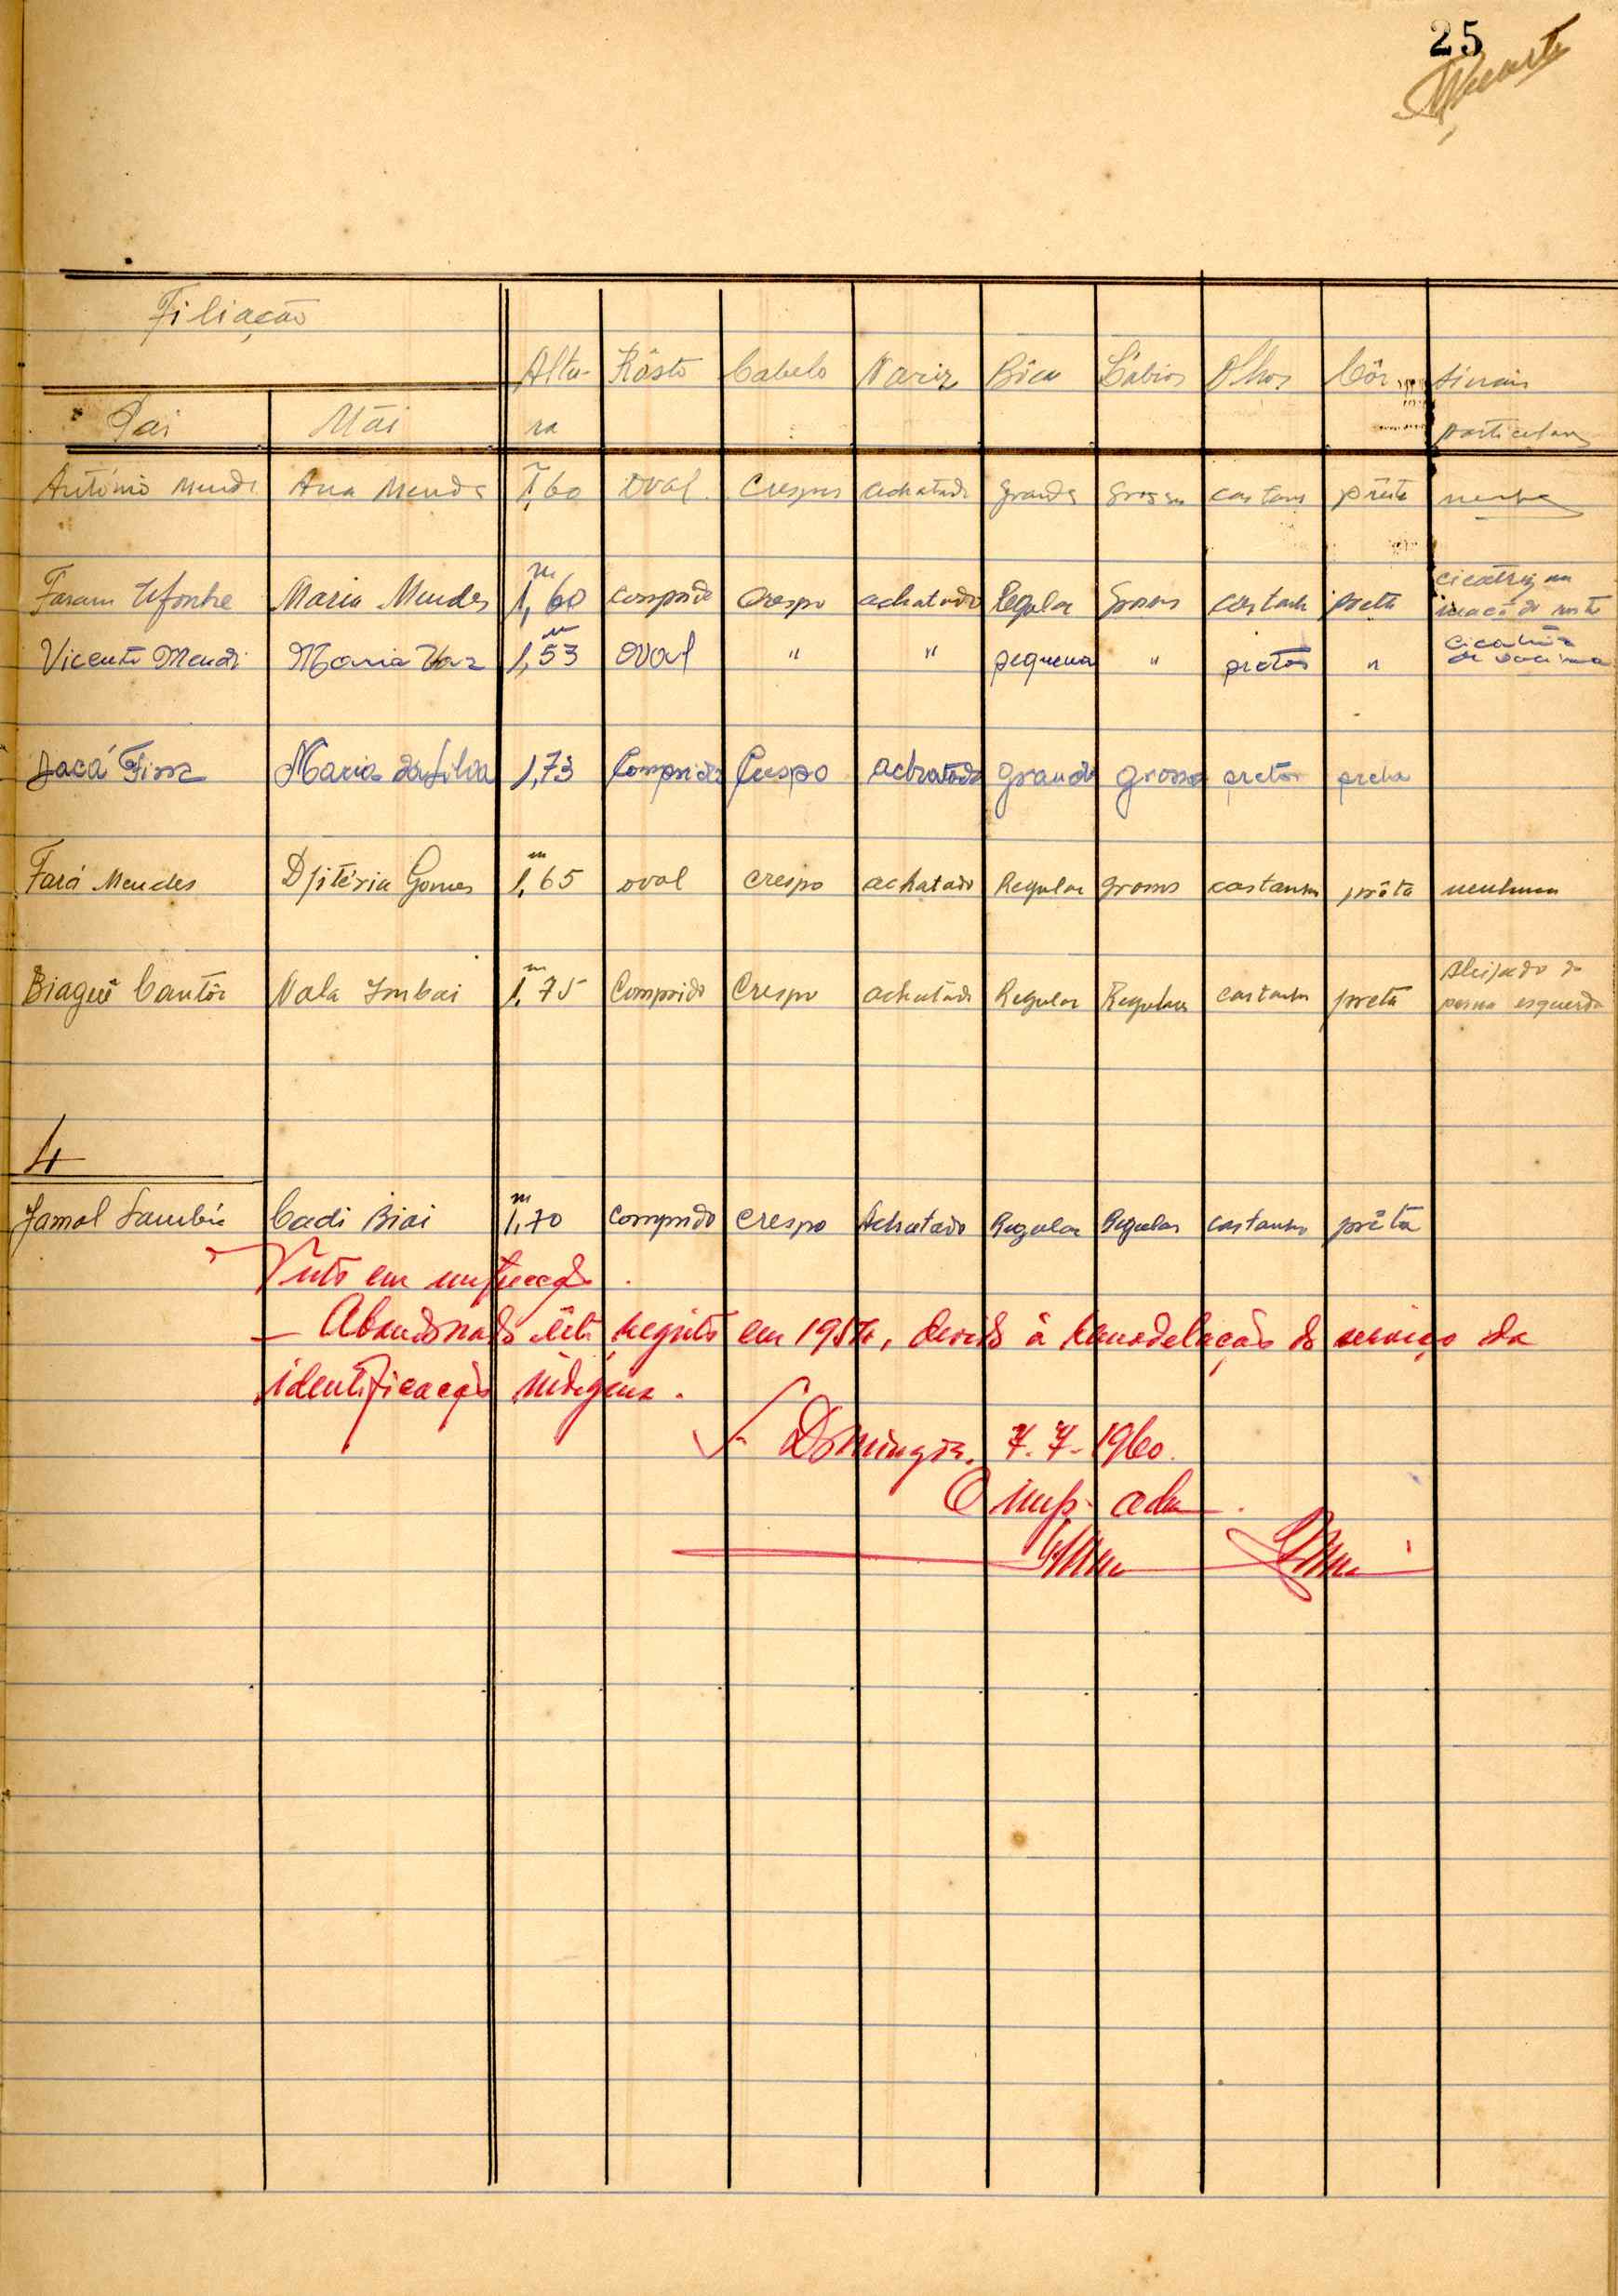 25
Filiação
Altu- Rôsto Cabelo Nariz Bôca Lábios Olhos Côr sinais
Pai Mãi ra particulares
António Mendes Ana Mendes 1,60 oval crespos achatado grande grossos castanhos prêta
m cicatriz na
Faram Maria Mendes 1,60 comprido crespo achatado Regular grossos castanh preta do rosto
m cicatriz
Vicente Mendi Maria Vaz 1,53 oval " " pequena " pretos " de vacina
Maria da Silva 1,73 Comprido Crespo achatado grande grosso pretos preta
m
Fará Mendes Djitéria Gomes 1,65 oval crespo achatado Regular grossos castanhos prêta nenhum
m Aleijado da
Biaguê Cantôr Nala Imbai 1,75 Comprido Crespo achatado Regular Regulares castanhos preta perna esquerda
4
m
Jamal Cadi Biai 1,70 comprido crespo Achatado Regular Regular castanho prêta
Visto em
— Abandonado êste registo em 195, devido à remodelação do serviço da
identificação indígena.
S. Domingos, 7-7-1960.
O insp. adm